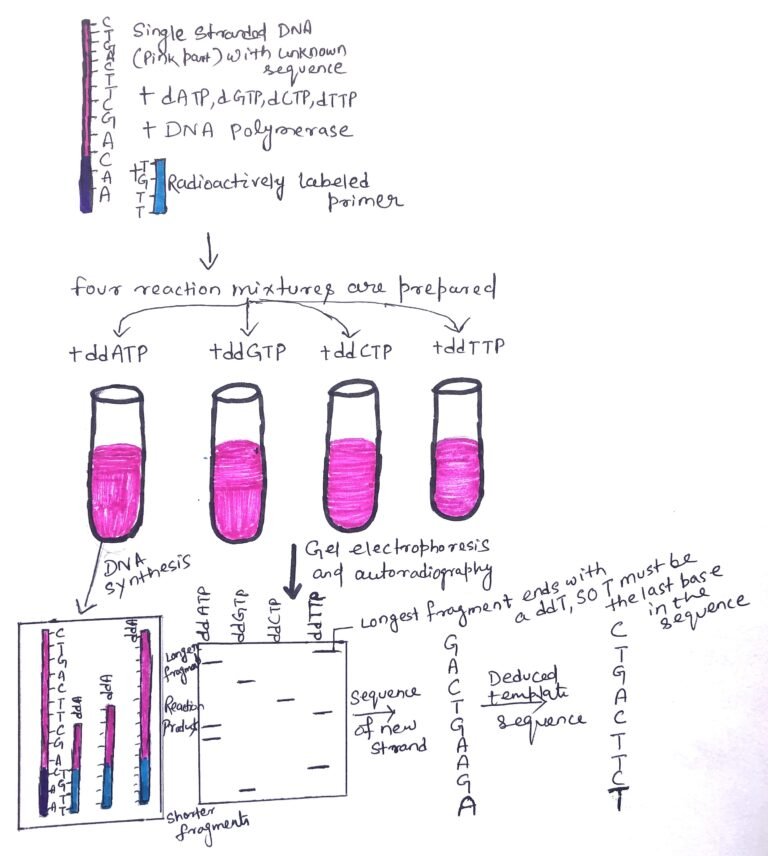 C
T
G
A
C
T
T
C
G
A
C
A
A
Single stranded DNA
(Pink part) with unknown
sequence
+ dATP, dGTP, dCTP, dTTP
+ DNA Polymerase
+
T
G
T
T
Radioactively labeled
primer
four reaction mixtures are prepared
+ddATP
+ddGTP
+ddCTP
+ddTTP
DNA
synthesis
Gel electrophoresis
and autoradiography
C
T
G
A
C
T
T
C
G
A
C
A
A
T
G
T
T
ddA
ddA
ddA
ddATP
ddGTP
ddCTP
ddTTP
Longest
fragment
Reaction
Product
Shorter
fragments
Longest fragment ends with
a ddT, SO T must be
the last base
in the
sequence
Sequence
of new
strand
G
A
C
T
G
A
A
G
A
Deduced
template
sequence
C
T
G
A
C
T
T
C
T